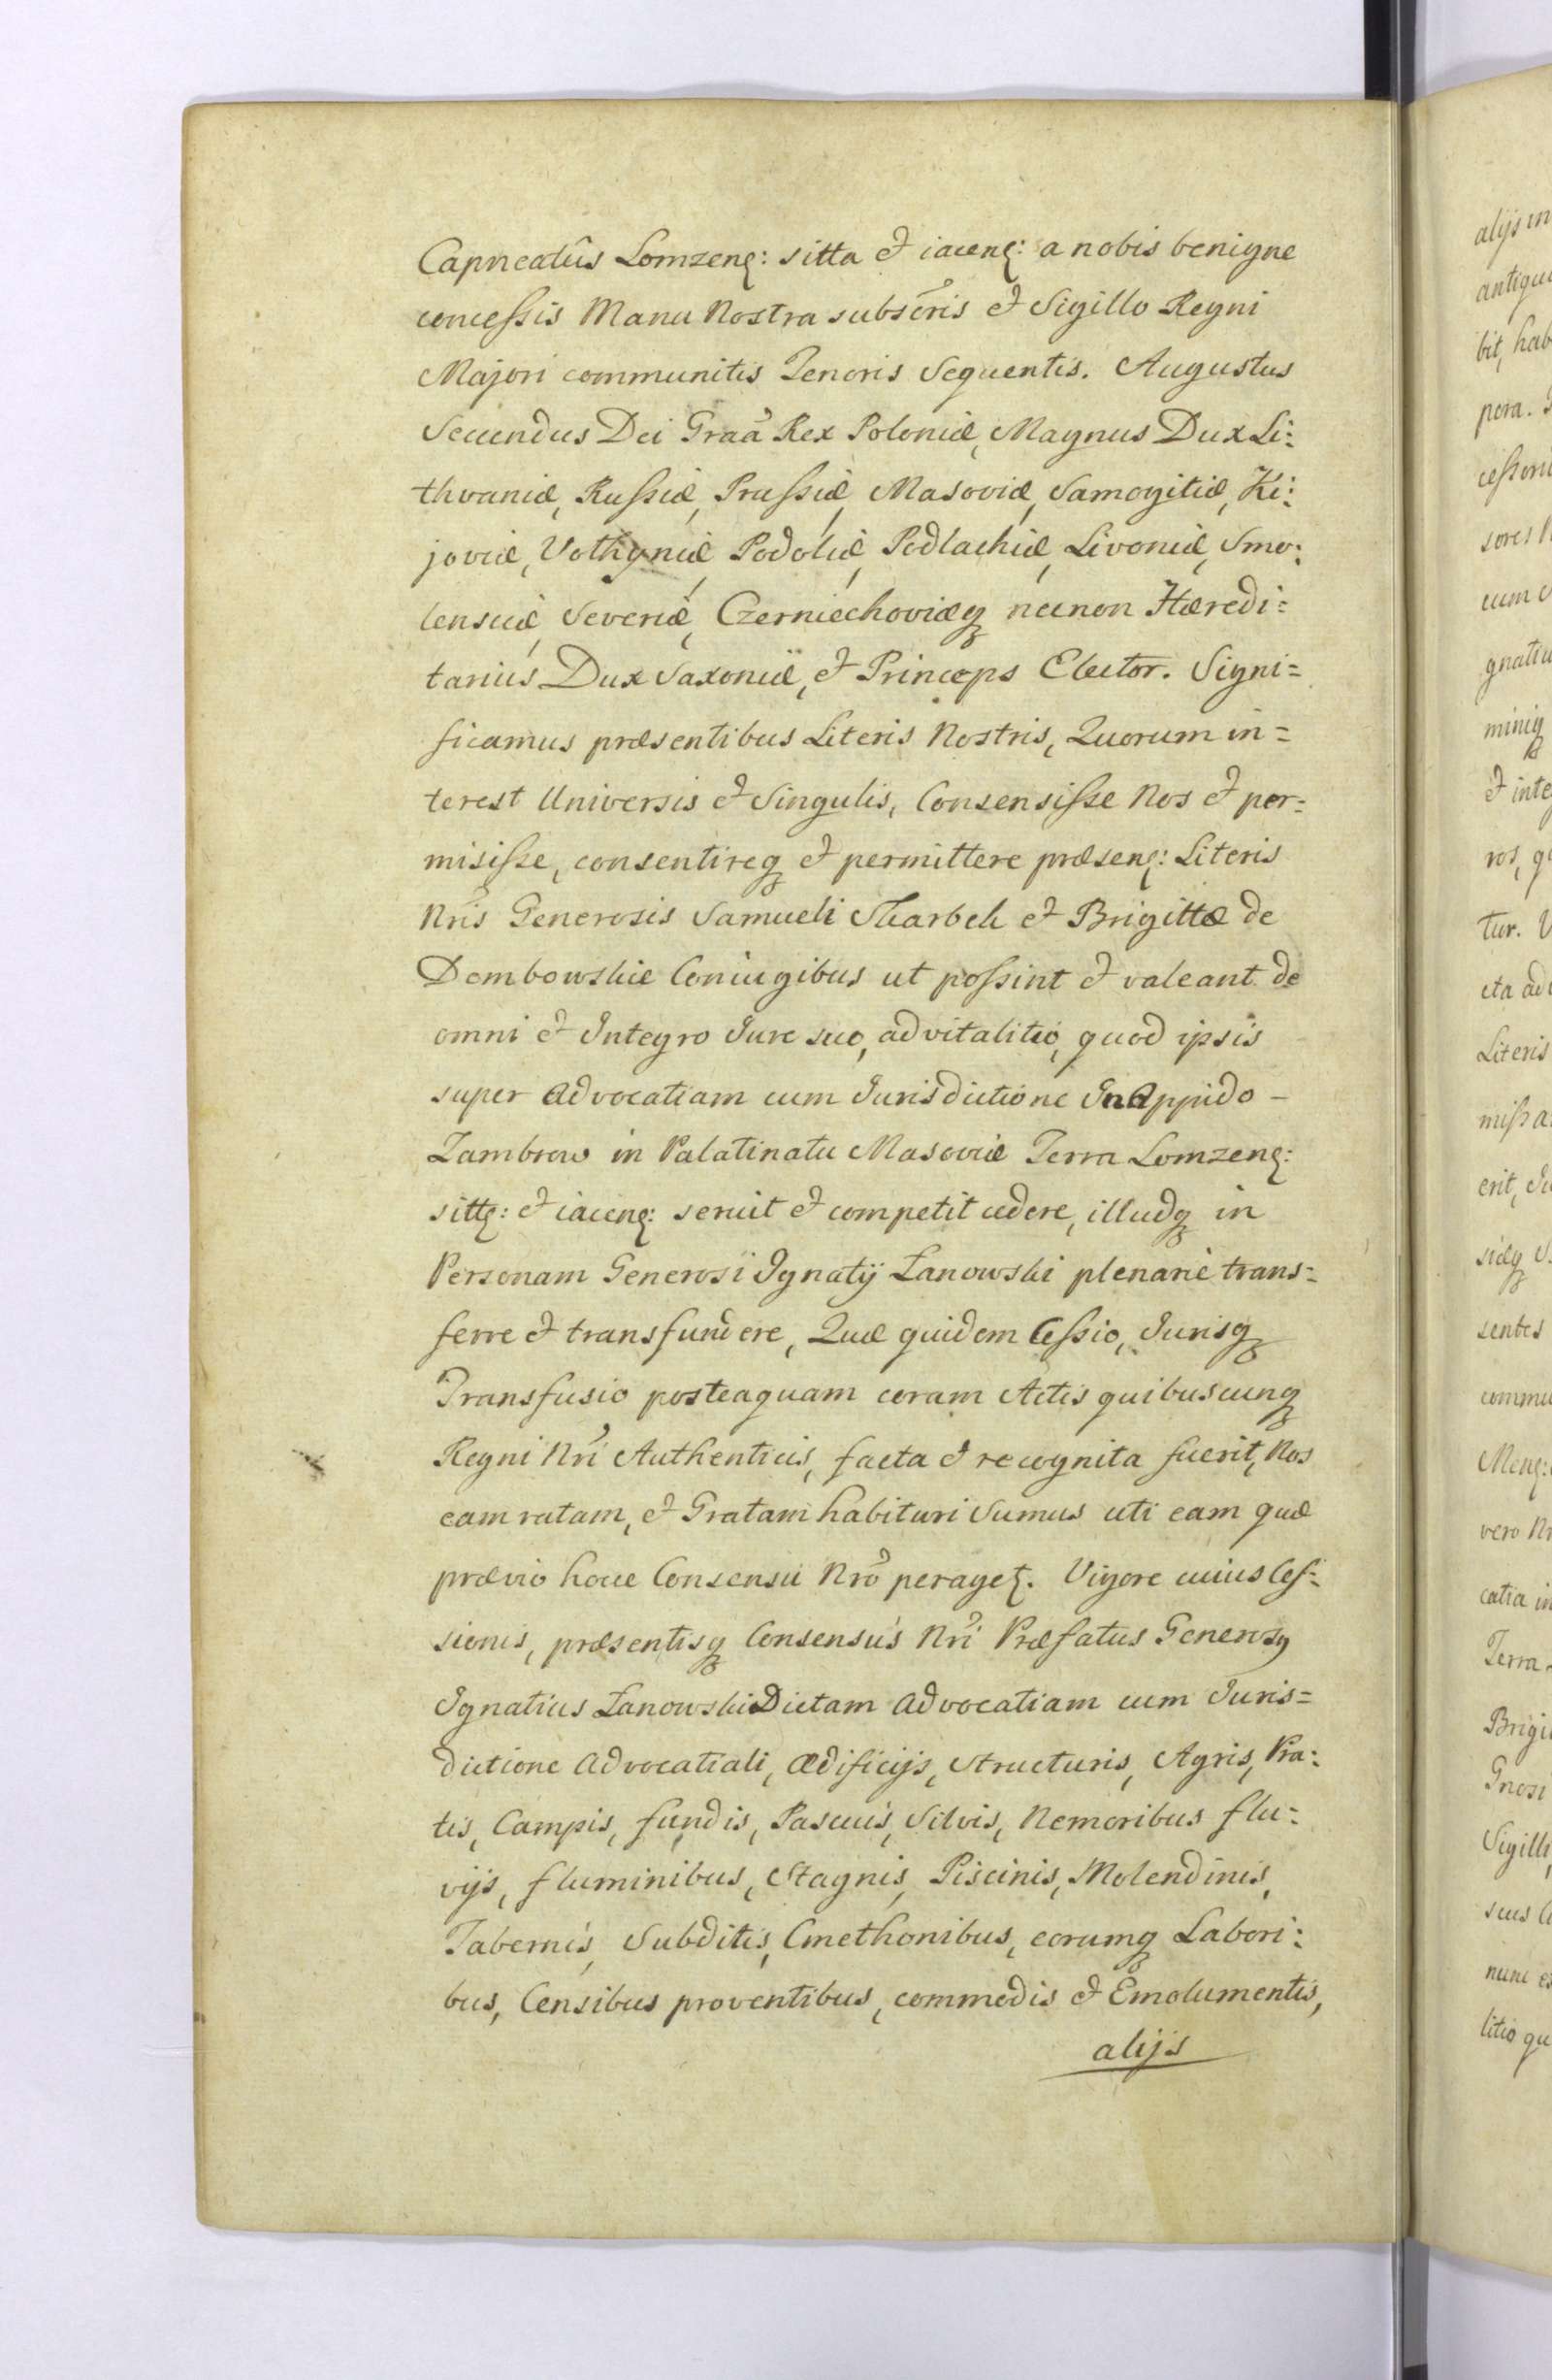 Capneatûs Lomzenę: sitta et iacenę: a nobis benigne
concessis Manu Nostra subscris et Sigillo Regni
Majori communitis Tenoris Sequentis. Augustus
Secundus Dei Graa Rex Poloniæ, Magnus Dux Li:
thvaniæ, Russiæ, Prussiæ, Masoviæ, Samogitiæ, Ki:
joviæ, Volhyniæ, Podoliæ, Podlachiæ, Livoniæ, Smo:
lensciæ, Severiæ, Czerniechoviæq necnon Hæredi=
tarius Dux Saxoniæ, et Princeps Elector. Signi=
ficamus præsentibus Literis Nostris, Quorum in=
terest Universis et Singulis, Consensisse Nos et per=
misisse, consentireq et permittere præsenę: Literis
Nris Generosis Samueli Skarbek et Brigittæ de
Dembowskie Coniugibus ut possint et valeant de
omni et Integro Jure suo, advitalitio, quod ipsis
super Advocatiam cum Jurisdictione In Oppido –
Zambrow in Palatinatu Masoviæ Terra Lomzenę:
sittę: et iacenę: servit et competit cedere, illudq in
Personam Generosi Ignatij Łanowski plenarie trans=
ferre et transfundere, Quæ quidem Cessio, Jurisq
Transfusio posteaquam coram Actis quibuscunq
Regni Nri Authenticis, facta et recognita fuerit, Nos
eam ratam, et Gratam habituri Sumus uti eam quæ
prævio hoce Consensu Nro peraget. Vigore cuius Ces=
sionis, præsentisq Consensûs Nri Præfatus Generosq
Ignatius Łanowski Dictam Advocatiam cum Juris=
dictione Advocatiali, Ædificijs, Structuris, Agris, Pra:
tis, Campis, fundis, Pascuis, Silvis, Nemoribus flu=
vijs, fluminibus, Stagnis, Piscinis, Molendinis,
Tabernis, Subditis, Cmethonibus, eorumq Labori:
bus, Censibus proventibus, commodis et Emolumentis,
alijs
alijs in
antiqu
bit, hab
pora.
cession
sores
cum
gnatiu
miniq
et inte
ros, q
tur. V
cta ad
Literis
miss a
erit, Ju
siæq S
sentes
commu
Menę:
vero Nr
catia in
Terra
Brigi
Gnosi
Sigilli
suus
nunc es
litio qu